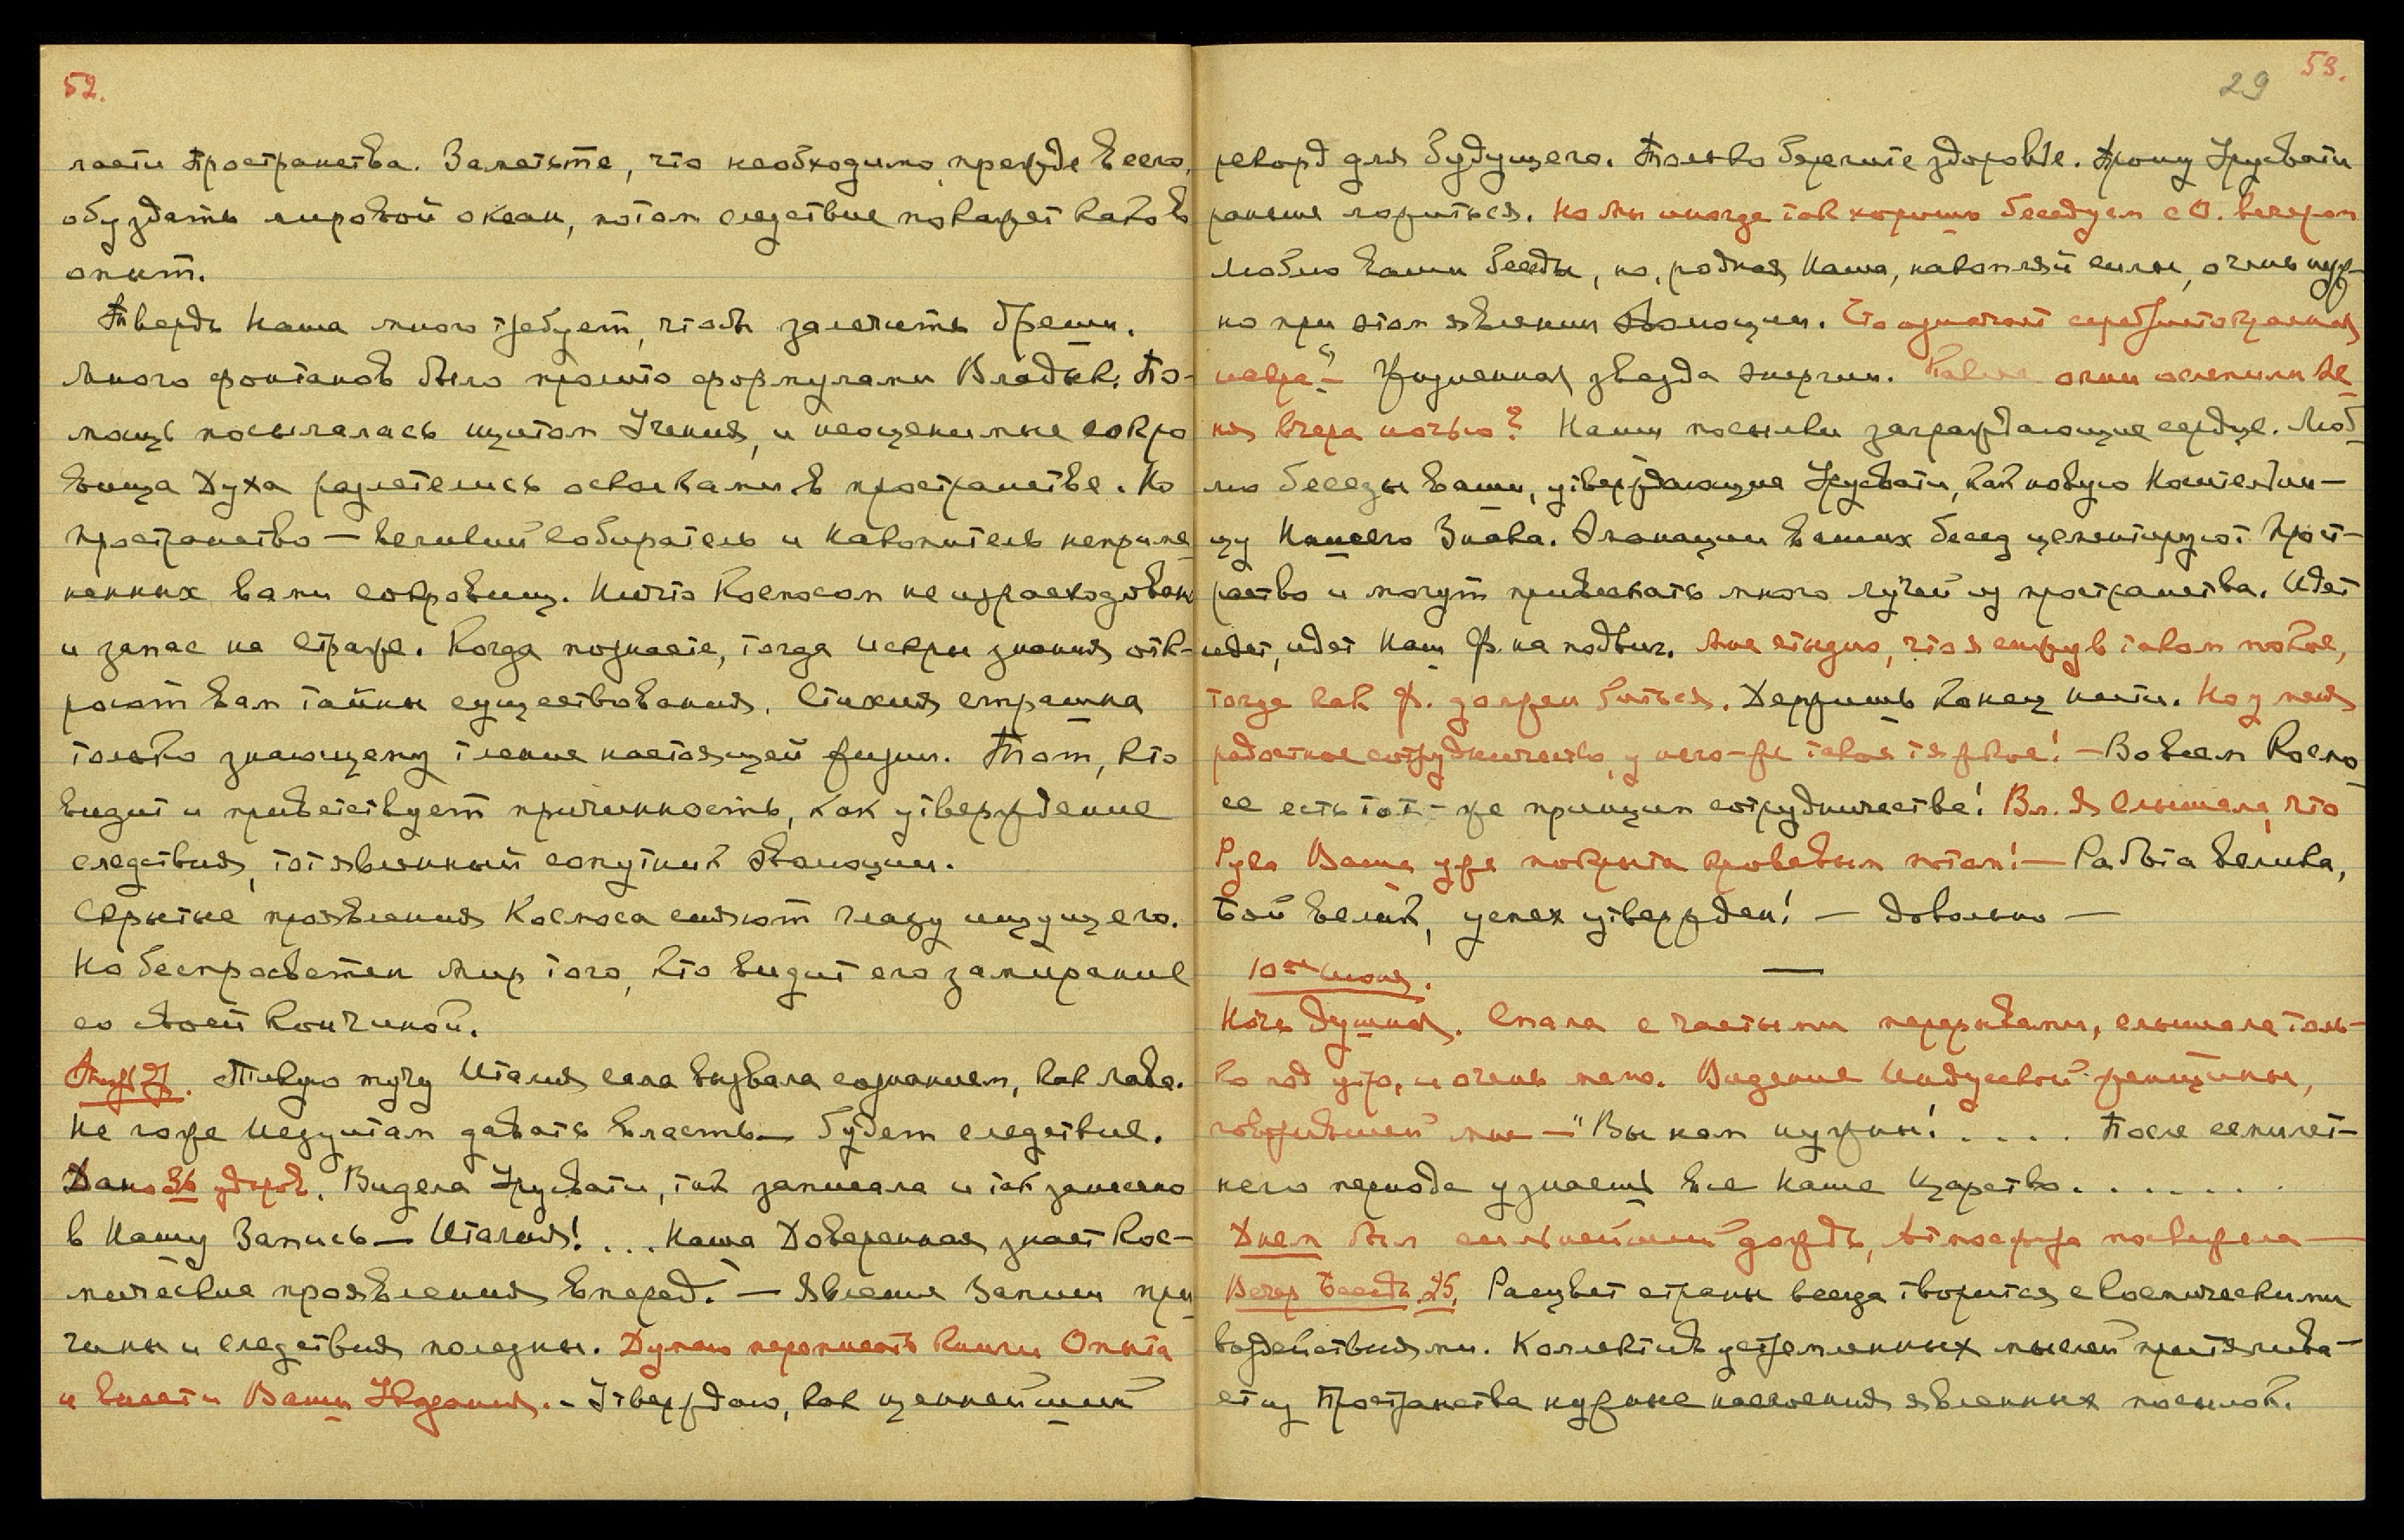 52.
ласти Пространства. Заметьте, что необходимо, прежде всего,
обуздать мировой океан, потом следствие покажет каков
опыт.
Твердь Наша много требует, чтобы залечить бреши.
Много фонтанов было пролито формулами Владык. По-
мощь посылалась щитом Учения, и неоценимые сокро
вища Духа разлетелись осколками в пространстве. Но
пространство — великий собиратель и накопитель неприме
ненных вами сокровищ. Ничто Космосом не израсходовано
и запас на страже. Когда познаете, тогда искры знания отк-
роют вам тайны существования. Стихия страшна
только знающему тление настоящей жизни. Тот, кто
видит и приветствует причинность, как утверждение
следствия, тот явленный сопутник эволюции.
Скрытые проявления Космоса сияют глазу ищущего.
Но беспросветен мир того, кто видит его замирание
со своей кончиной.
тучу Италия сама вызвала сознанием, как лава.
Не гоже Иезуитам давать власть — будет следствие.
Дано 36 ударов. Видела Урусвати, так записала и так занесено
в Нашу Запись — Италия! ... Наша Доверенная знает Кос-
мические проявления вперед. — Явления Записи при
чины и следствия полезны. Думаю переписать книги Опыта
и внести Ваши Указания. - Утверждаю, как ценнейший
29 53.
рекорд для будущего. Только берегите здоровье. Прошу Урусвати
раньше ложиться. Но мы иногда так хорошо беседуем с О. вечером
Люблю ваши беседы, но, родная Наша, накопляй силы, очень нуж-
но при этом явлении эволюции. Что означает серебристо
искра"— Жизненная звезда энергии. огни ослепили ме
ня вчера ночью? Наши посылки заграждающие сердце. Люб
лю беседы ваши, утверждающие Урусвати, как новую Носительни-
цу Нашего Знака. Эманации ваших бесед цементируют прост-
ранство и могут привлекать много лучей из пространства. Идет
идет, идет Наш Ф. на подвиг. Мне стыдно, что я сижу в таком покое,
тогда как Ф. должен биться. Держишь конец нити. Но у меня
радостное сотрудничество, у него-же такое тяжкое! — Во всем Космо
се есть тот-же принцип сотрудничества! Вл. Я слышала, что
Рука Ваша уже покрыта кровавым потом! — Работа велика,
Бой велик, успех утвержден! — Довольно —
10ое июня.
Ночь душная. Спала с частыми перерывами, слышала толь-
ко под утро, и очень мало. Видение Индусской женщины,
говорившей мне — "Вы нам нужны! . . . . После семилет-
него периода узнаешь все Наше Царство. . . . . . .
Днем был сильнейший дождь, атмосфера посвежела —
Вечер Беседа 25. Расцвет страны всегда творится с космическими
воздействиями. Коллектив устремленных мыслей притягива-
ет из Пространства нужные наслоения явленных посылок.